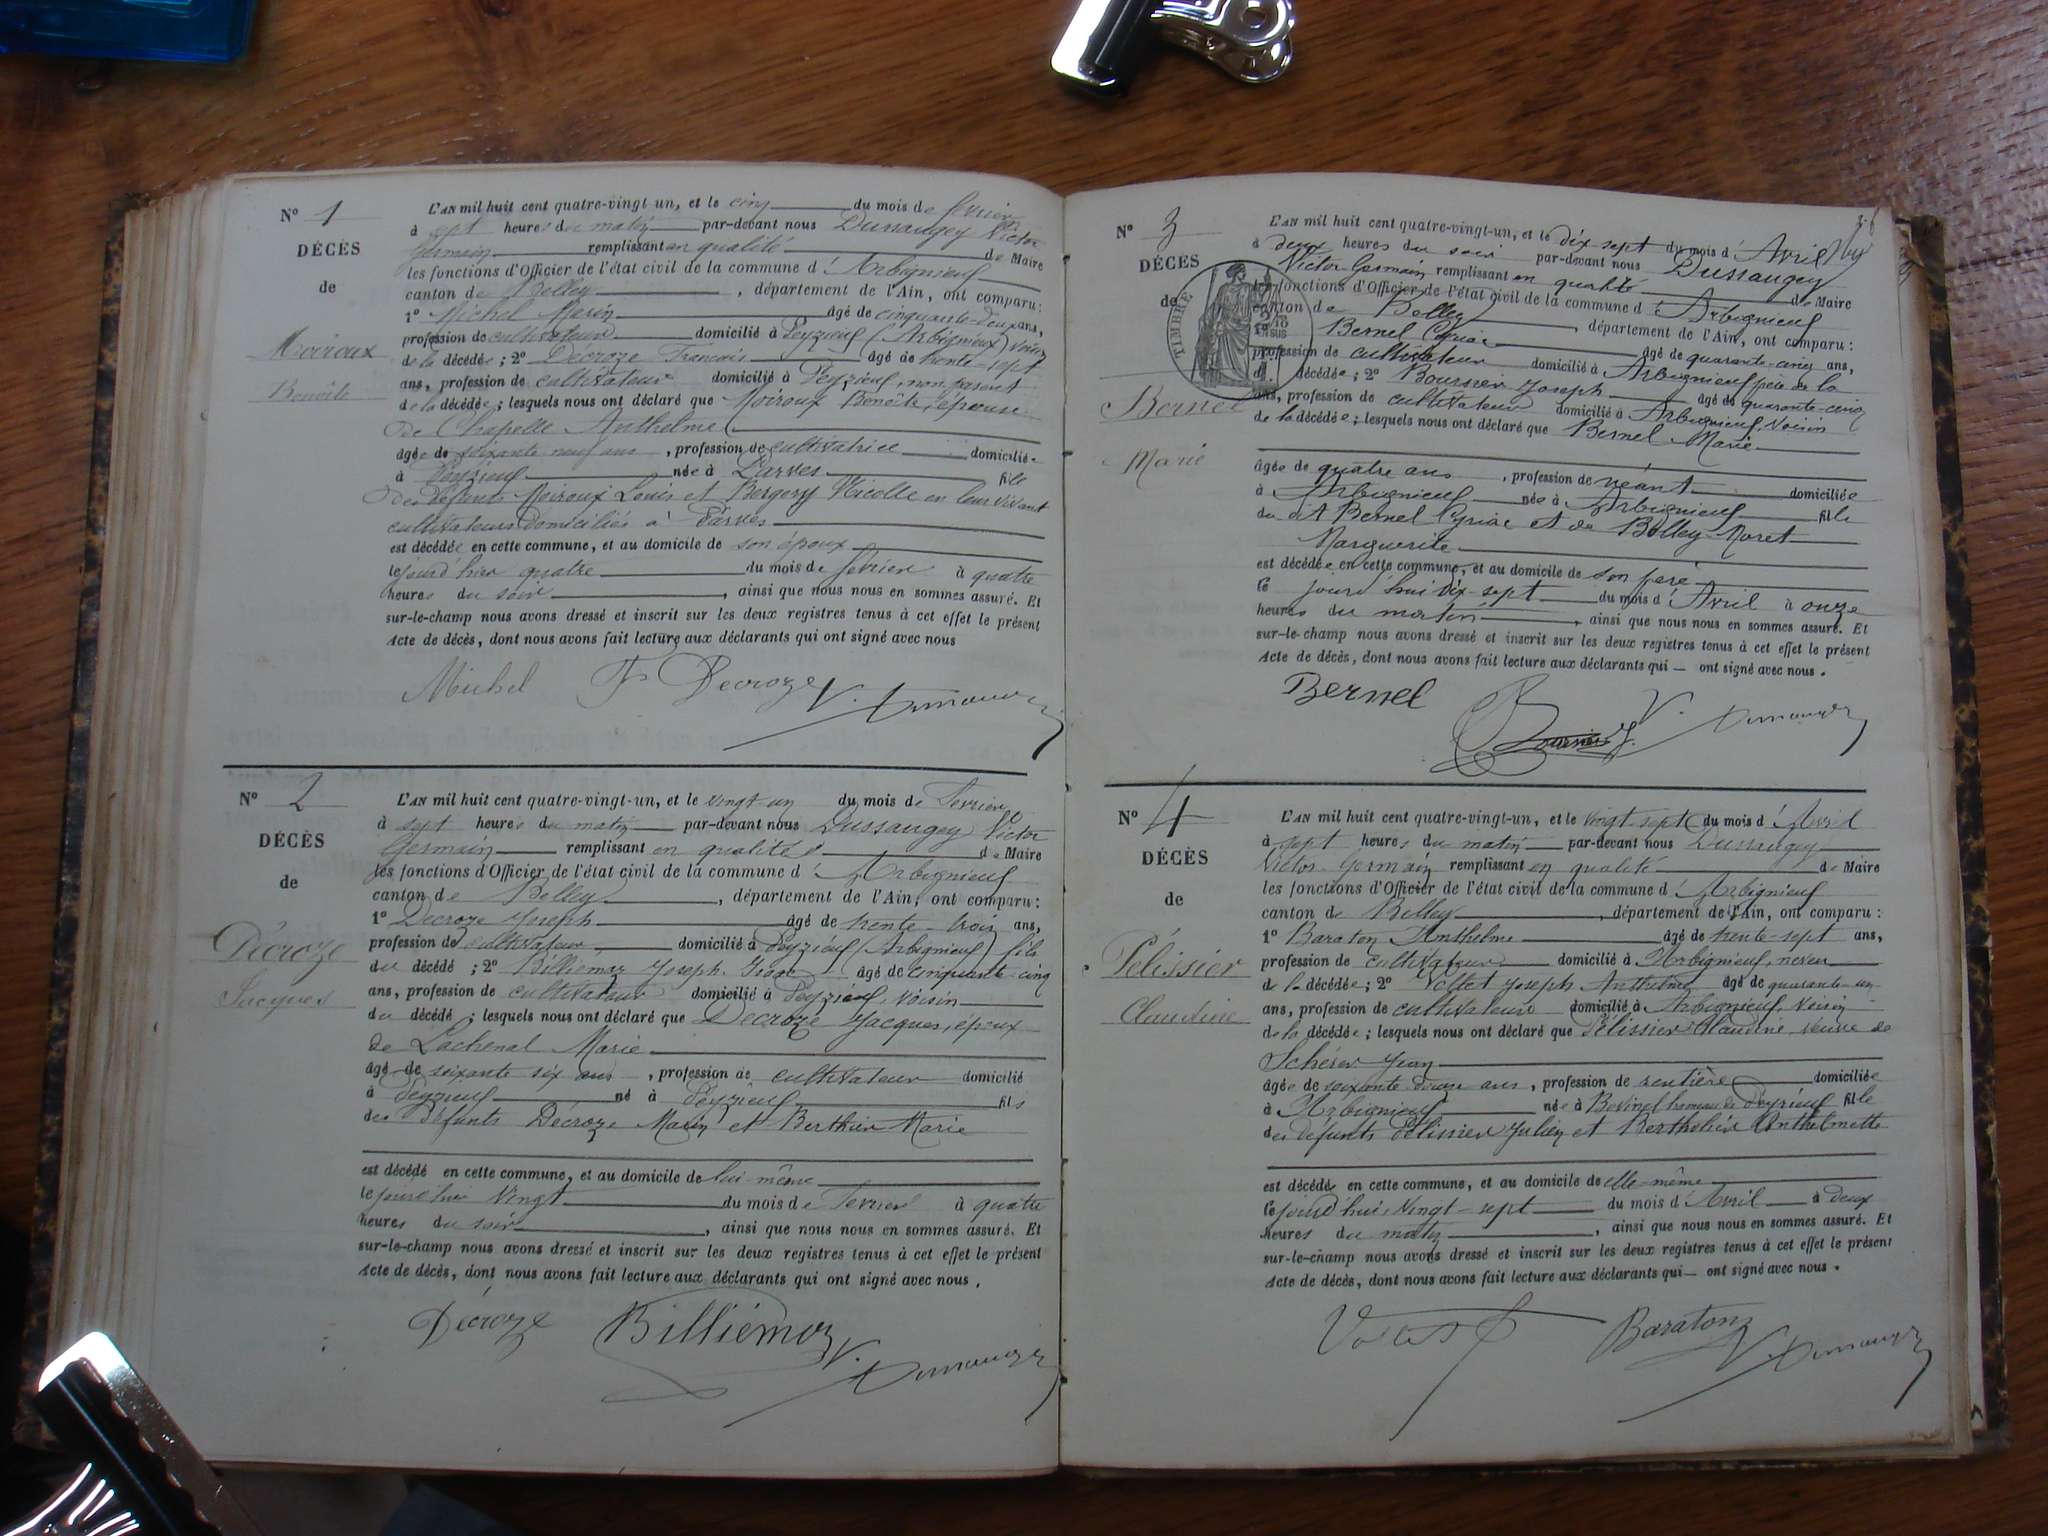 N° 1
DÉCÈS
de
Moiroux
Benoîte
L'AN mil huit cent quatre-vingt-un, et le cinq du mois de février
à sept heures du matin par-devant nous Dussaugey Victor
Germain remplissant en qualité de Maire
les fonctions d'Officier de l'état civil de la commune d'Arbignieu
canton de Belley, département de l'Ain, ont comparu :
1° Michel Marin âgé de cinquante-deux ans,
profession de cultivateur domicilié à Peyzieu (Arbignieu) voisin
de la décédée ; 2° Decroze François âgé de trente-sept
ans, profession de cultivateur domicilié à Peyzieu, non parent
de la décédée ; lesquels nous ont déclaré que Moiroux Benoîte, épouse
de Chapelle Anthelme
âgée de soixante neuf ans, profession de cultivatrice domiciliée
à Peyzieu née à Parves fille
des défunts Moiroux Louis et Bergery Nicolle en leur vivant
cultivateurs domiciliés à Parves
est décédée en cette commune, et au domicile de son époux
le jour d'hier quatre du mois de février à quatre
heures du soir, ainsi que nous nous en sommes assuré. Et
sur-le-champ nous avons dressé et inscrit sur les deux registres tenus à cet effet le présent
Acte de décès, dont nous avons fait lecture aux déclarants qui ont signé avec nous
Michel F Decroze V. Dussaugey
N° 2
DÉCÈS
de
Décroze
Jacques
L'AN mil huit cent quatre-vingt-un, et le vingt-un du mois de Fevrier
à sept heures du matin par-devant nous Dussaugey Victor
Germain remplissant en qualité de Maire
les fonctions d'Officier de l'état civil de la commune d'Arbignieu
canton de Belley, département de l'Ain, ont comparu :
1° Decroze Joseph âgé de trente-trois ans,
profession de cultivateur domicilié à Peyzieu (Arbignieu) fils
du décédé ; 2° Billiémaz Joseph âgé de cinquante-cinq
ans, profession de cultivateur domicilié à Peyzieu, voisin
du décédé ; lesquels nous ont déclaré que Decroze Jacques, époux
de Lachenal Marie
âgé de soixante six ans, profession de cultivateur domicilié
à Peyzieu né à Peyzieu fils
des défunts Décroze Marin et Berthier Marie
est décédé en cette commune, et au domicile de lui-même
le jour d'hier vingt du mois de Fevrier à quatre
heures du soir, ainsi que nous nous en sommes assuré. Et
sur-le-champ nous avons dressé et inscrit sur les deux registres tenus à cet effet le présent
Acte de décès, dont nous avons fait lecture aux déclarants qui ont signé avec nous.
Décroze Billiémaz V. Dussaugey
N° 3
DÉCÈS
de
Bernel
Marie
TIMBRE
L'AN mil huit cent quatre-vingt-un, et le dix-sept du mois d'Avril
à deux heures du soir par-devant nous Dussaugey
Victor Germain remplissant en qualité de Maire
les fonctions d'Officier de l'état civil de la commune d'Arbignieu
canton de Belley, département de l'Ain, ont comparu :
1° Bernel Cyriac âgé de quarante-cinq ans,
profession de cultivateur domicilié à Arbignieu père de la
décédée ; 2° Boursier Joseph âgé de quarante-cinq
ans, profession de cultivateur domicilié à Arbignieu, voisin
de la décédée ; lesquels nous ont déclaré que Bernel Marie
âgée de quatre ans, profession de néant domiciliée
à Arbignieu née à Arbignieu fille
du dit Bernel Cyriac et de Bolley Moret
Marguerite
est décédée en cette commune, et au domicile de son père
le jourd'hui dix-sept du mois d'Avril à onze
heures du matin, ainsi que nous nous en sommes assuré. Et
sur-le-champ nous avons dressé et inscrit sur les deux registres tenus à cet effet le présent
Acte de décès, dont nous avons fait lecture aux déclarants qui — ont signé avec nous.
Bernel
V. Dussaugey
N° 4
DÉCÈS
de
Pélissier
Claudine
L'AN mil huit cent quatre-vingt-un, et le vingt-sept du mois d'Avril
à sept heures du matin par-devant nous Dussaugey
Victor Germain remplissant en qualité de Maire
les fonctions d'Officier de l'état civil de la commune d'Arbignieu
canton de Belley, département de l'Ain, ont comparu :
1° Baraton Anthelme âgé de trente-sept ans,
profession de cultivateur domicilié à Arbignieu, neveu
de la décédée ; 2° Vollet Joseph Anthelme âgé de quarante-un
ans, profession de cultivateur domicilié à Arbignieu, voisin
de la décédée ; lesquels nous ont déclaré que Pélissier Claudine, veuve de
Schérer Jean
âgée de soixante-douze ans, profession de rentière domiciliée
à Arbignieu née à hameau de Peyzieu fille
des défunts Pélissier Julien et Berthelier Anthelmette
est décédée en cette commune, et au domicile de elle-même
le jourd'hui vingt-sept du mois d'Avril à deux
heures du matin, ainsi que nous nous en sommes assuré. Et
sur-le-champ nous avons dressé et inscrit sur les deux registres tenus à cet effet le présent
Acte de décès, dont nous avons fait lecture aux déclarants qui — ont signé avec nous.
Baraton V. Dussaugey